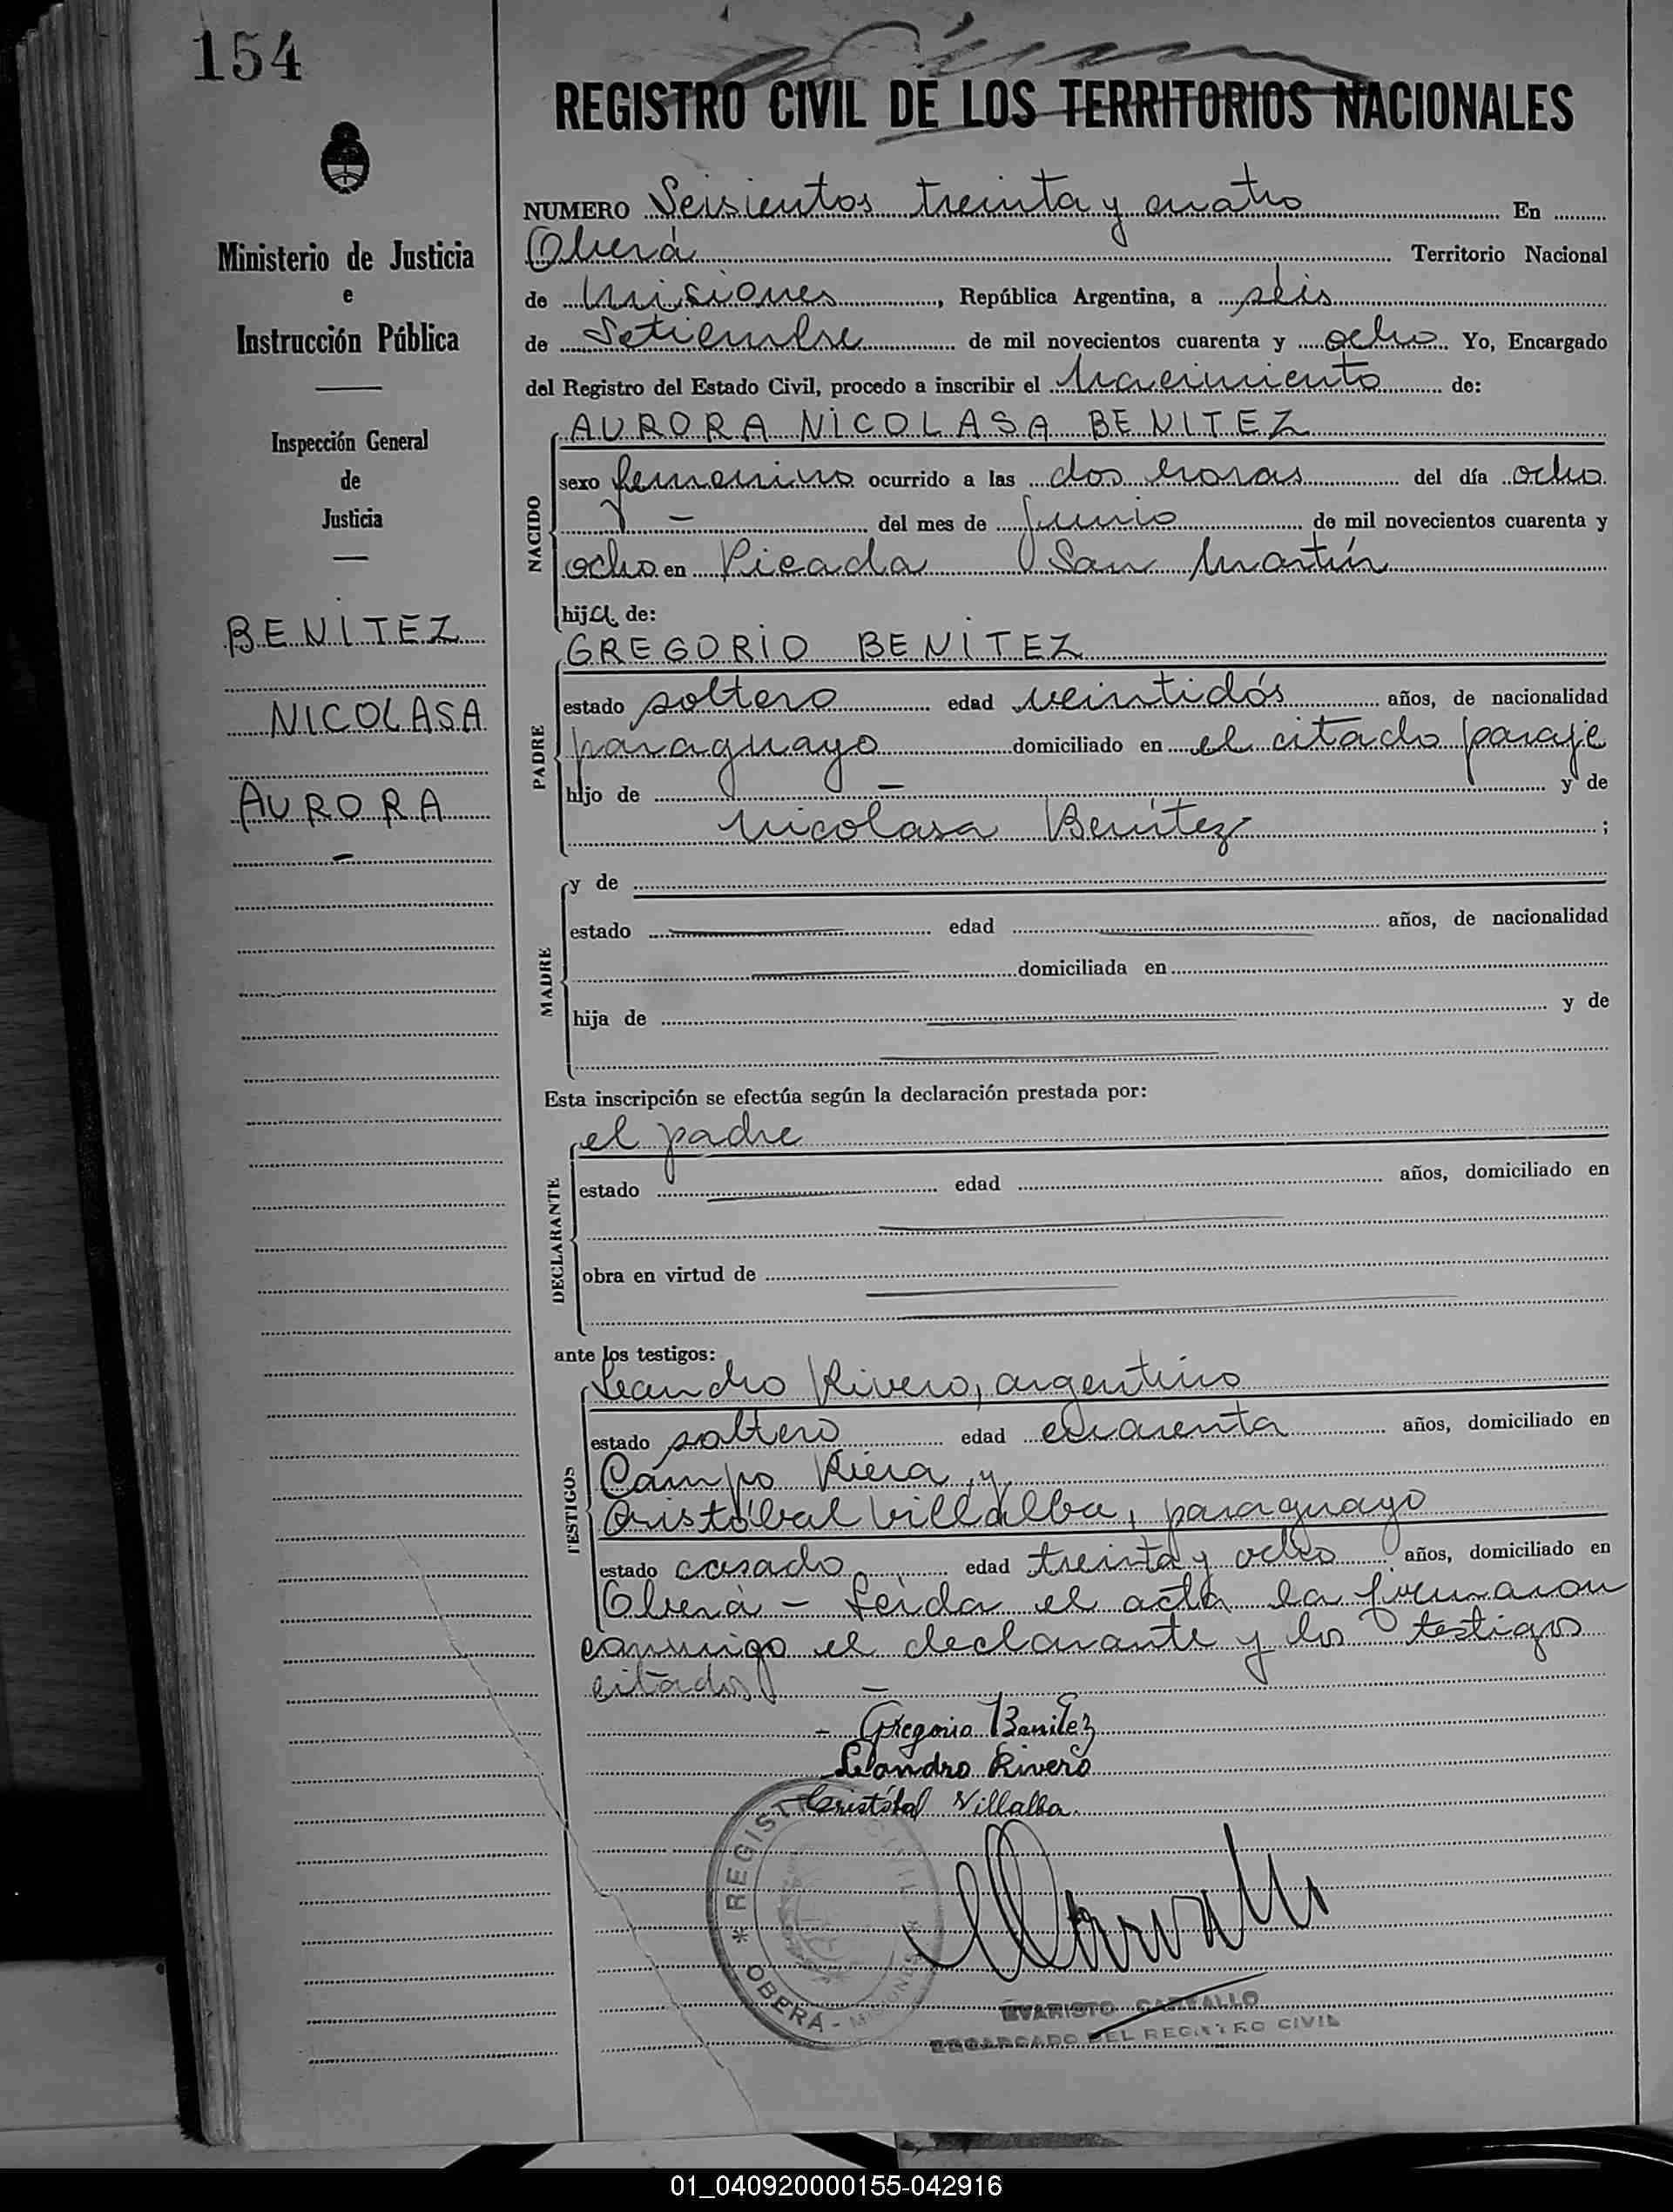 154
REGISTRO CIVIL DE LOS TERRITORIOS NACIONALES
Ministerio de Justicia
e
Instrucción Pública
Inspección General
de
Justicia
BENITEZ
NICOLASA
AURORA
NUMERO Seisientos treinta y cuatro En
Oberá Territorio Nacional
de Misiones, República Argentina, a seis
de Setiembre de mil novecientos cuarenta y ocho Yo, Encargado
del Registro del Estado Civil, procedo a inscribir el nacimiento de:
NACIDO
AURORA NICOLASA BENITEZ
sexo femenino ocurrido a las dos horas del día ocho
— del mes de Junio de mil novecientos cuarenta y
ocho en Picada San Martín
hija de:
PADRE
GREGORIO BENITEZ
estado soltero edad veintidós años, de nacionalidad
paraguayo domiciliado en el citado paraje
hijo de — y de
Nicolasa Benítez ;
MADRE
y de
estado edad años, de nacionalidad
domiciliada en
hija de y de
Esta inscripción se efectúa según la declaración prestada por:
DECLARANTE
el padre
estado edad años, domiciliado en
obra en virtud de
ante los testigos:
TESTIGOS
Leandro Rivero, argentino
estado soltero edad cuarenta años, domiciliado en
Campo Viera y
Cristóbal Villalba, paraguayo
estado casado edad treinta y ocho años, domiciliado en
Oberá – Leída el acta la firmaron
conmigo el declarante y los testigos
citados —
Gregorio Benitez
Leandro Rivero
Cristóbal Villalba
REGISTRO CIVIL
* OBERÁ - MISIONES *
EVARISTO CARVALLO
ENCARGADO DEL REGISTRO CIVIL
01_040920000155-042916